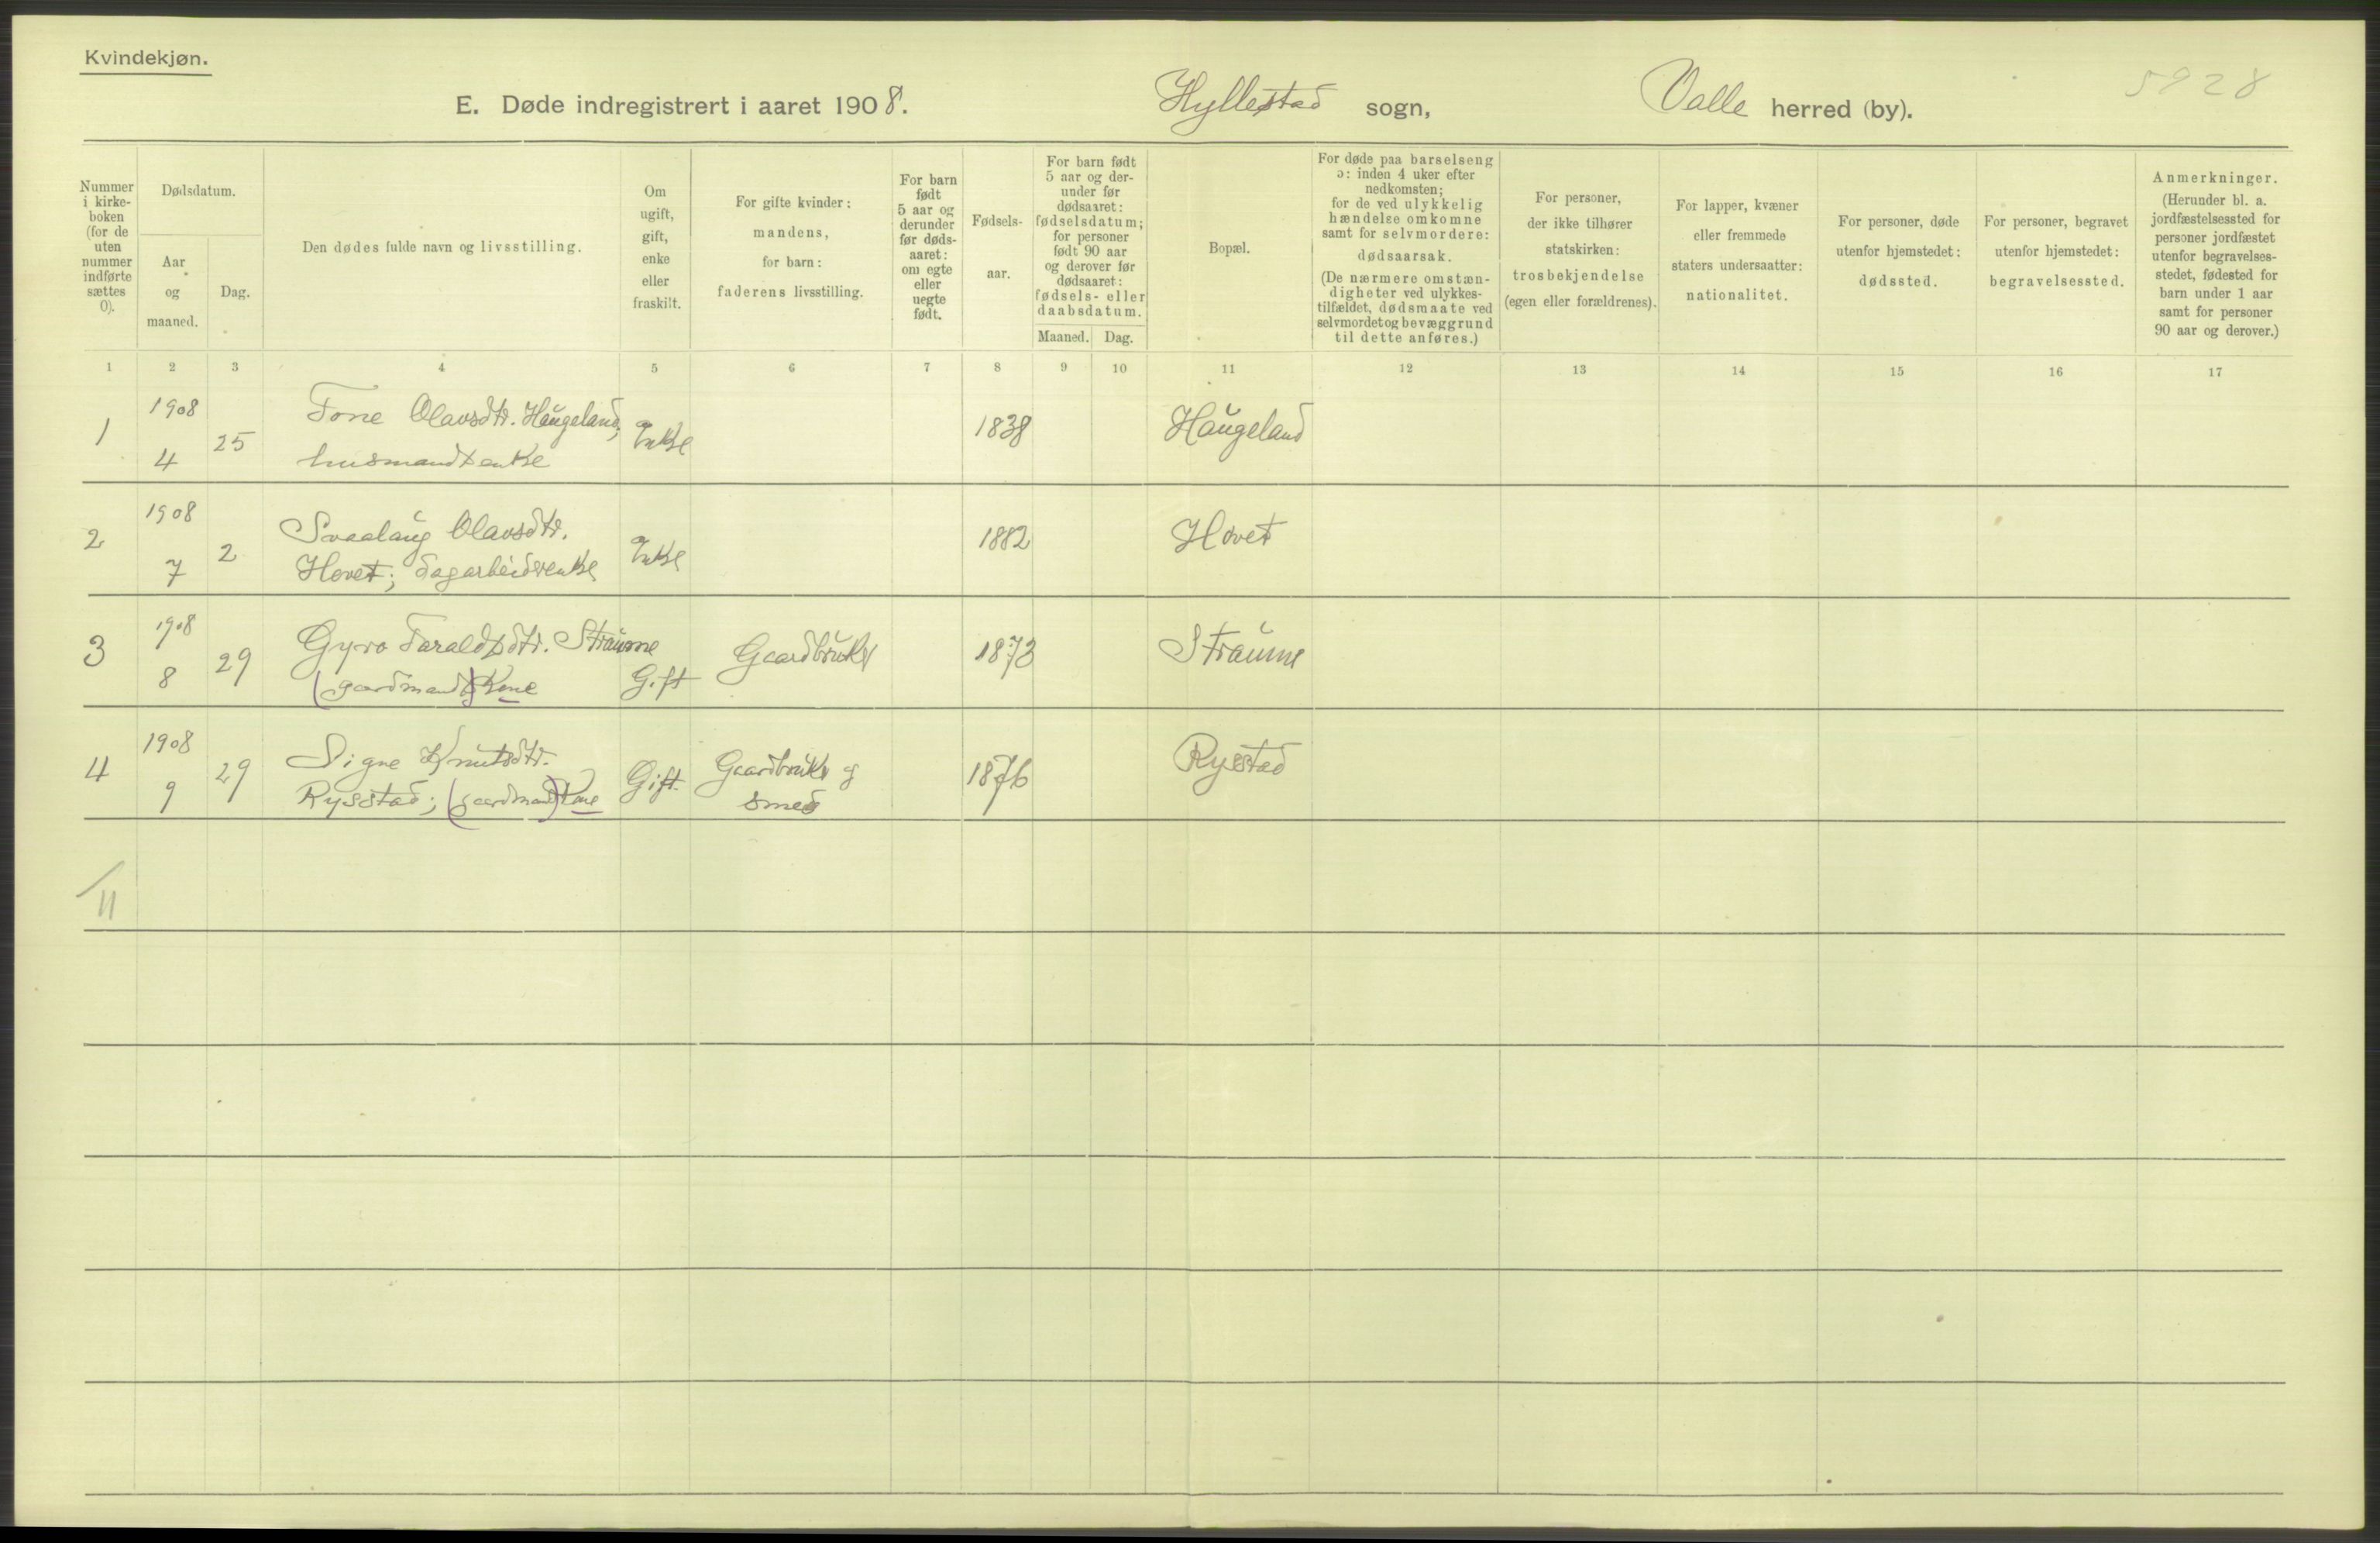 Kvindekjøn.
E. Døde indregistrert i aaret 1908. Hyllestad sogn, Valle herred (by). 5928
Nummer i kirkeboken (for de uten nummer indførte sættes 0).
Dødsdatum.
Aar og maaned.
Dag.
Den dødes fulde navn og livsstilling.
Om ugift, gift, enke eller fraskilt.
For gifte kvinder: mandens, for barn: faderens livsstilling.
For barn født 5 aar og derunder før dødsaaret: om egte eller uegte født.
Fødselsaar.
For barn født 5 aar og derunder før dødsaaret: fødselsdatum; for personer født 90 aar og derover før dødsaaret: fødsels- eller daabsdatum.
Maaned. Dag.
Bopæl.
For døde paa barselseng ɔ: inden 4 uker efter nedkomsten; for de ved ulykkelig hændelse omkomne samt for selvmordere: dødsaarsak. (De nærmere omstændigheter ved ulykkestilfældet, dødsmaate ved selvmordet og bevæggrund til dette anføres.)
For personer, der ikke tilhører statskirken: trosbekjendelse (egen eller forældrenes).
For lapper, kvæner eller fremmede staters undersaatter: nationalitet.
For personer, døde utenfor hjemstedet: dødssted.
For personer, begravet utenfor hjemstedet: begravelsessted.
Anmerkninger. (Herunder bl. a. jordfæstelsessted for personer jordfæstet utenfor begravelsesstedet, fødested for barn under 1 aar samt for personer 90 aar og derover.)
1 2 3 4 5 6 7 8 9 10 11 12 13 14 15 16 17
1 1908 4 25 Tone Olavsdtr. Haugeland; husmandsenke Enke 1838 Haugeland
2 1908 7 2 Svaalaug Olavsdtr. Hovet; dagarbeiderenke Enke 1882 Hovet
3 1908 8 29 Gyro Taraldsdtr. Straume (gardmands) Kone Gift Gaardbruker 1873 Straume
4 1908 9 29 Signe Knutsdtr. Rysstad; (gaardmands) Kone Gift. Gaardbruker og smed 1876 Rysstad
11